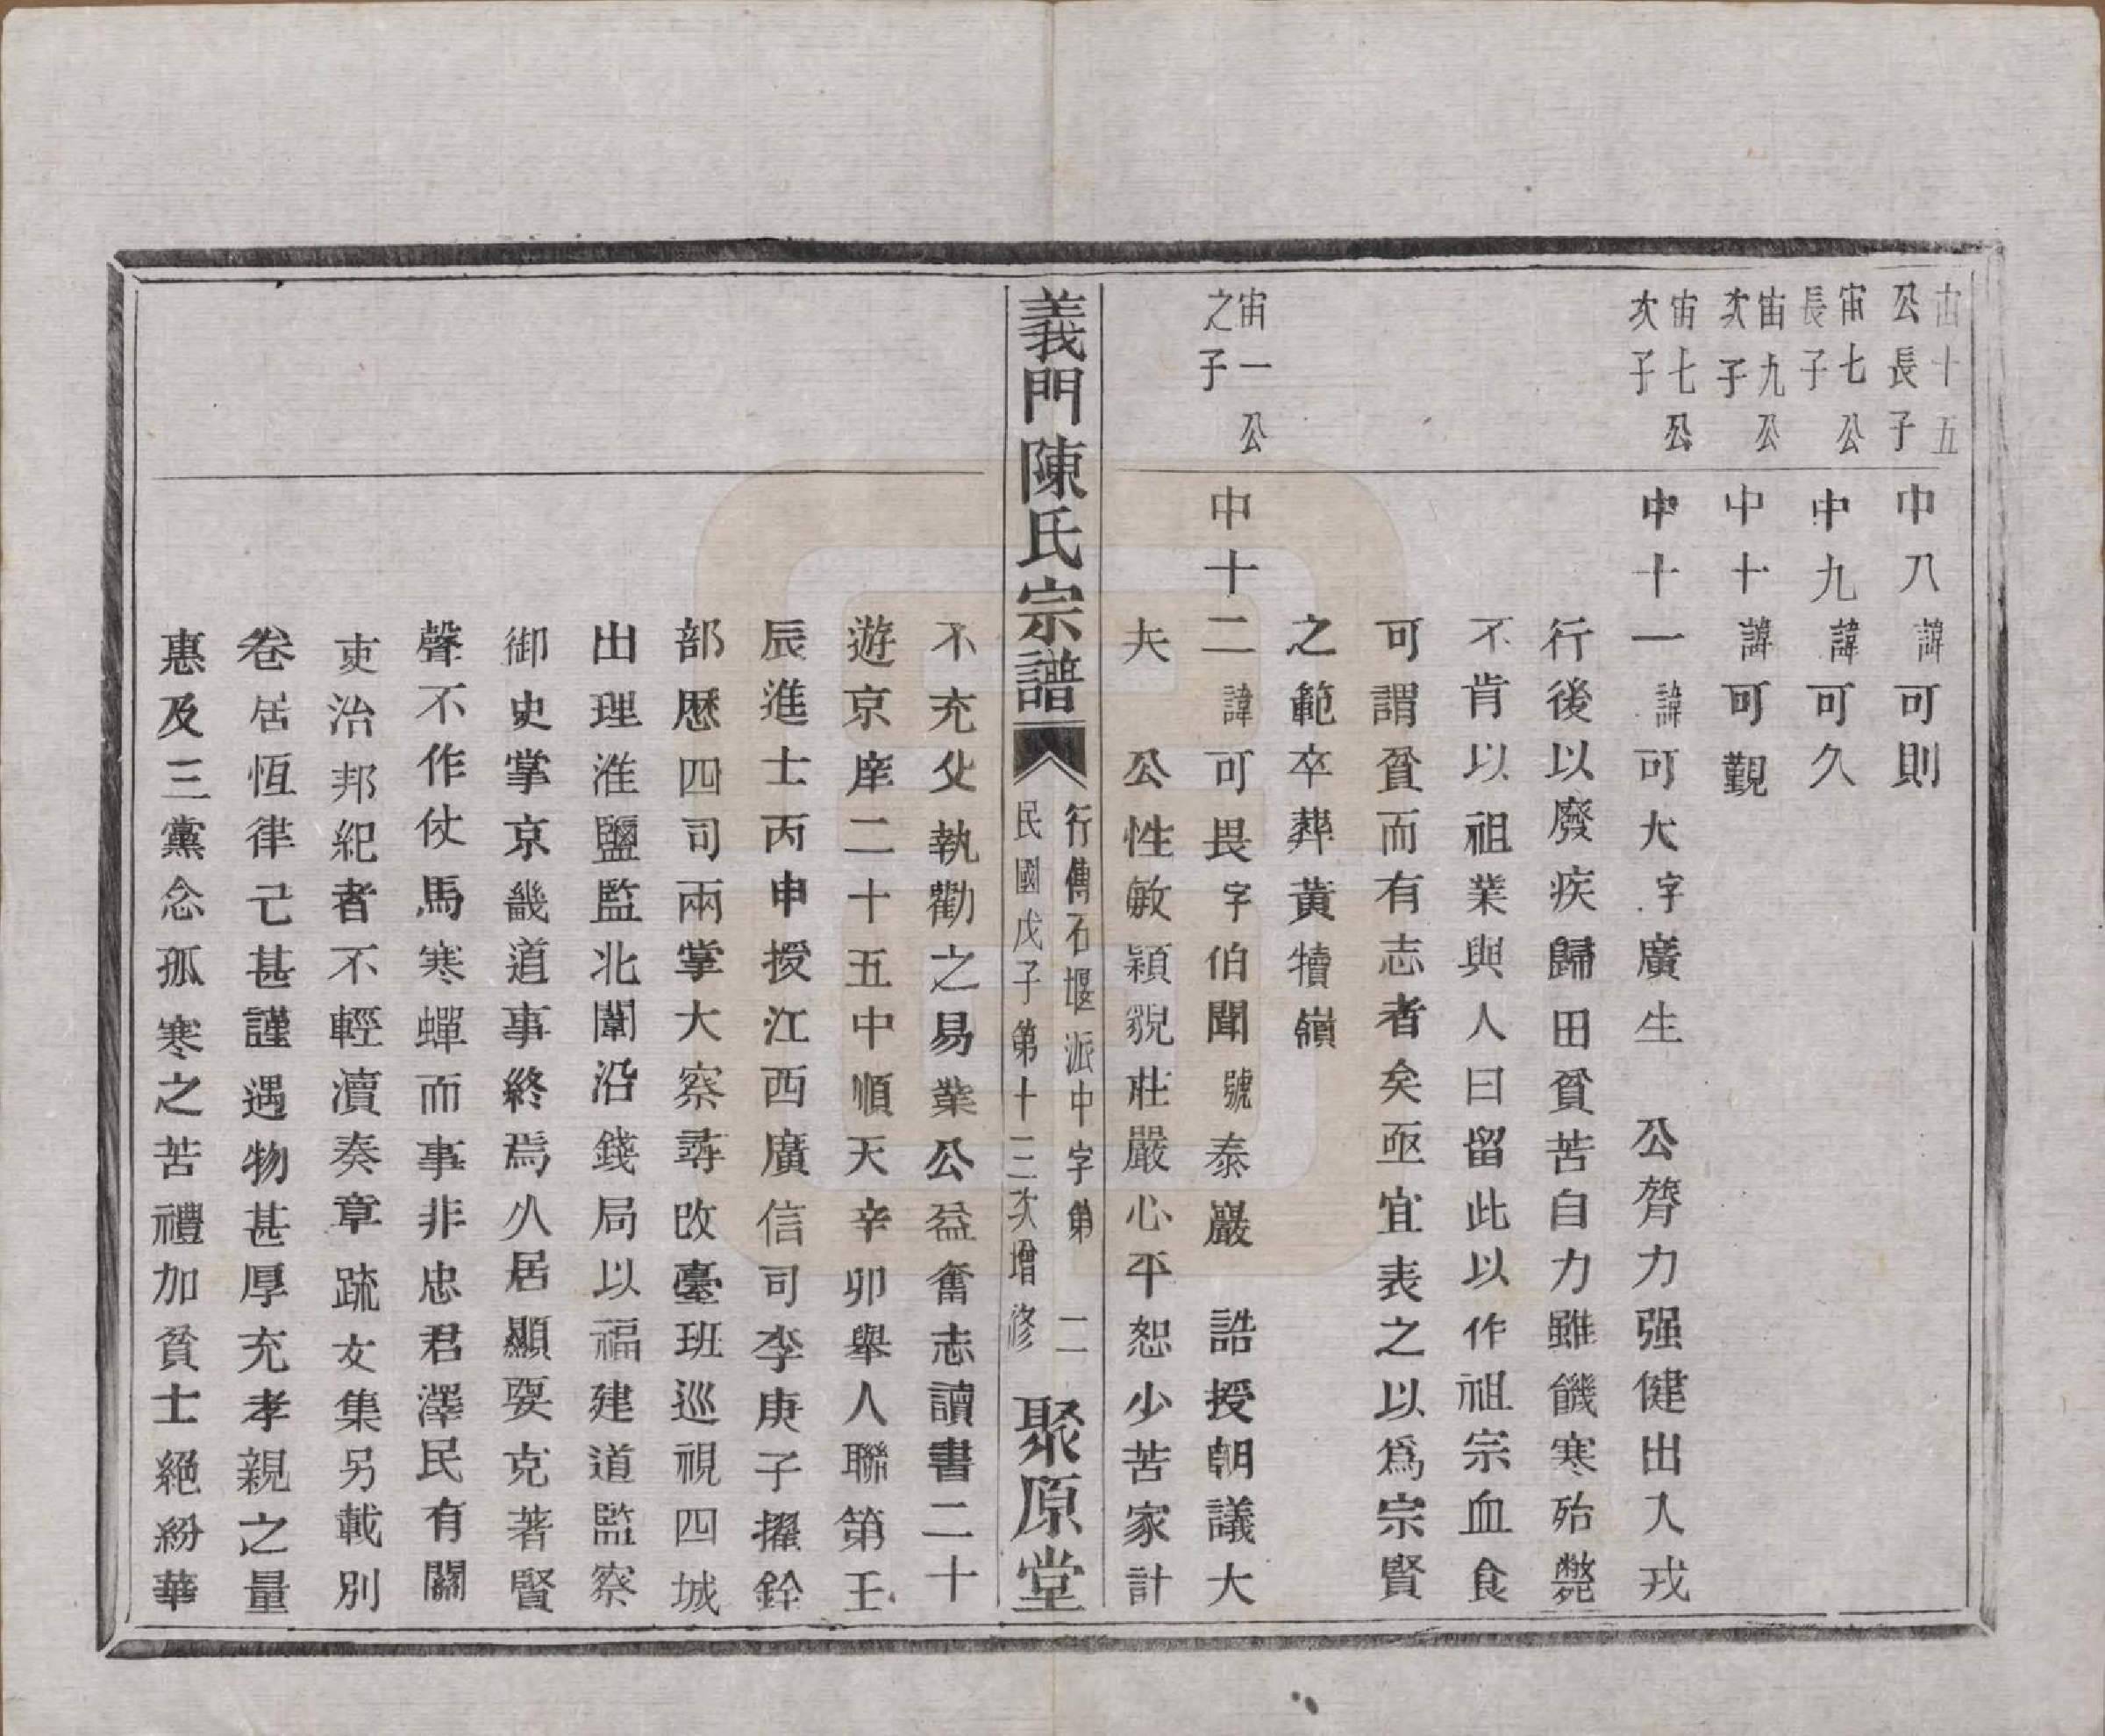 宙十五
公長子
中八諱可則
宙七公
長子
中九諱可久
宙九公
次子
中十諱可觀
宙七公
次子
中十一諱可大字廣生　公膂力强健出入戎
行後以廢疾歸田貧苦自力雖饑寒殆斃
不肯以祖業與人曰留此以作祖宗血食
可謂貧而有志者矣亟宜表之以爲宗賢
之範卒葬黃犢嶺
宙一公
之子
中十二諱可畏字伯聞號泰巖　誥授朝議大
夫　公性敏穎貌莊嚴心平恕少苦家計
義門陳氏宗譜
行傳石堰派中字第　二
民國戊子第十三次增修
聚原堂
不充父執勸之易業公益奮志讀書二十
遊京庠二十五中順天辛卯舉人聯第壬
辰進士丙申授江西廣信司李庚子擢銓
部歷四司兩掌大察尋改臺班巡視四城
出理淮鹽監北闈沿錢局以福建道監察
御史掌京畿道事終焉公居顯要克著賢
聲不作仗馬寒蟬而事非忠君澤民有關
吏治邦紀者不輕瀆奏章疏文集另載別
卷居恆律己甚謹遇物甚厚充孝親之量
惠及三黨念孤寒之苦禮加貧士絕紛華